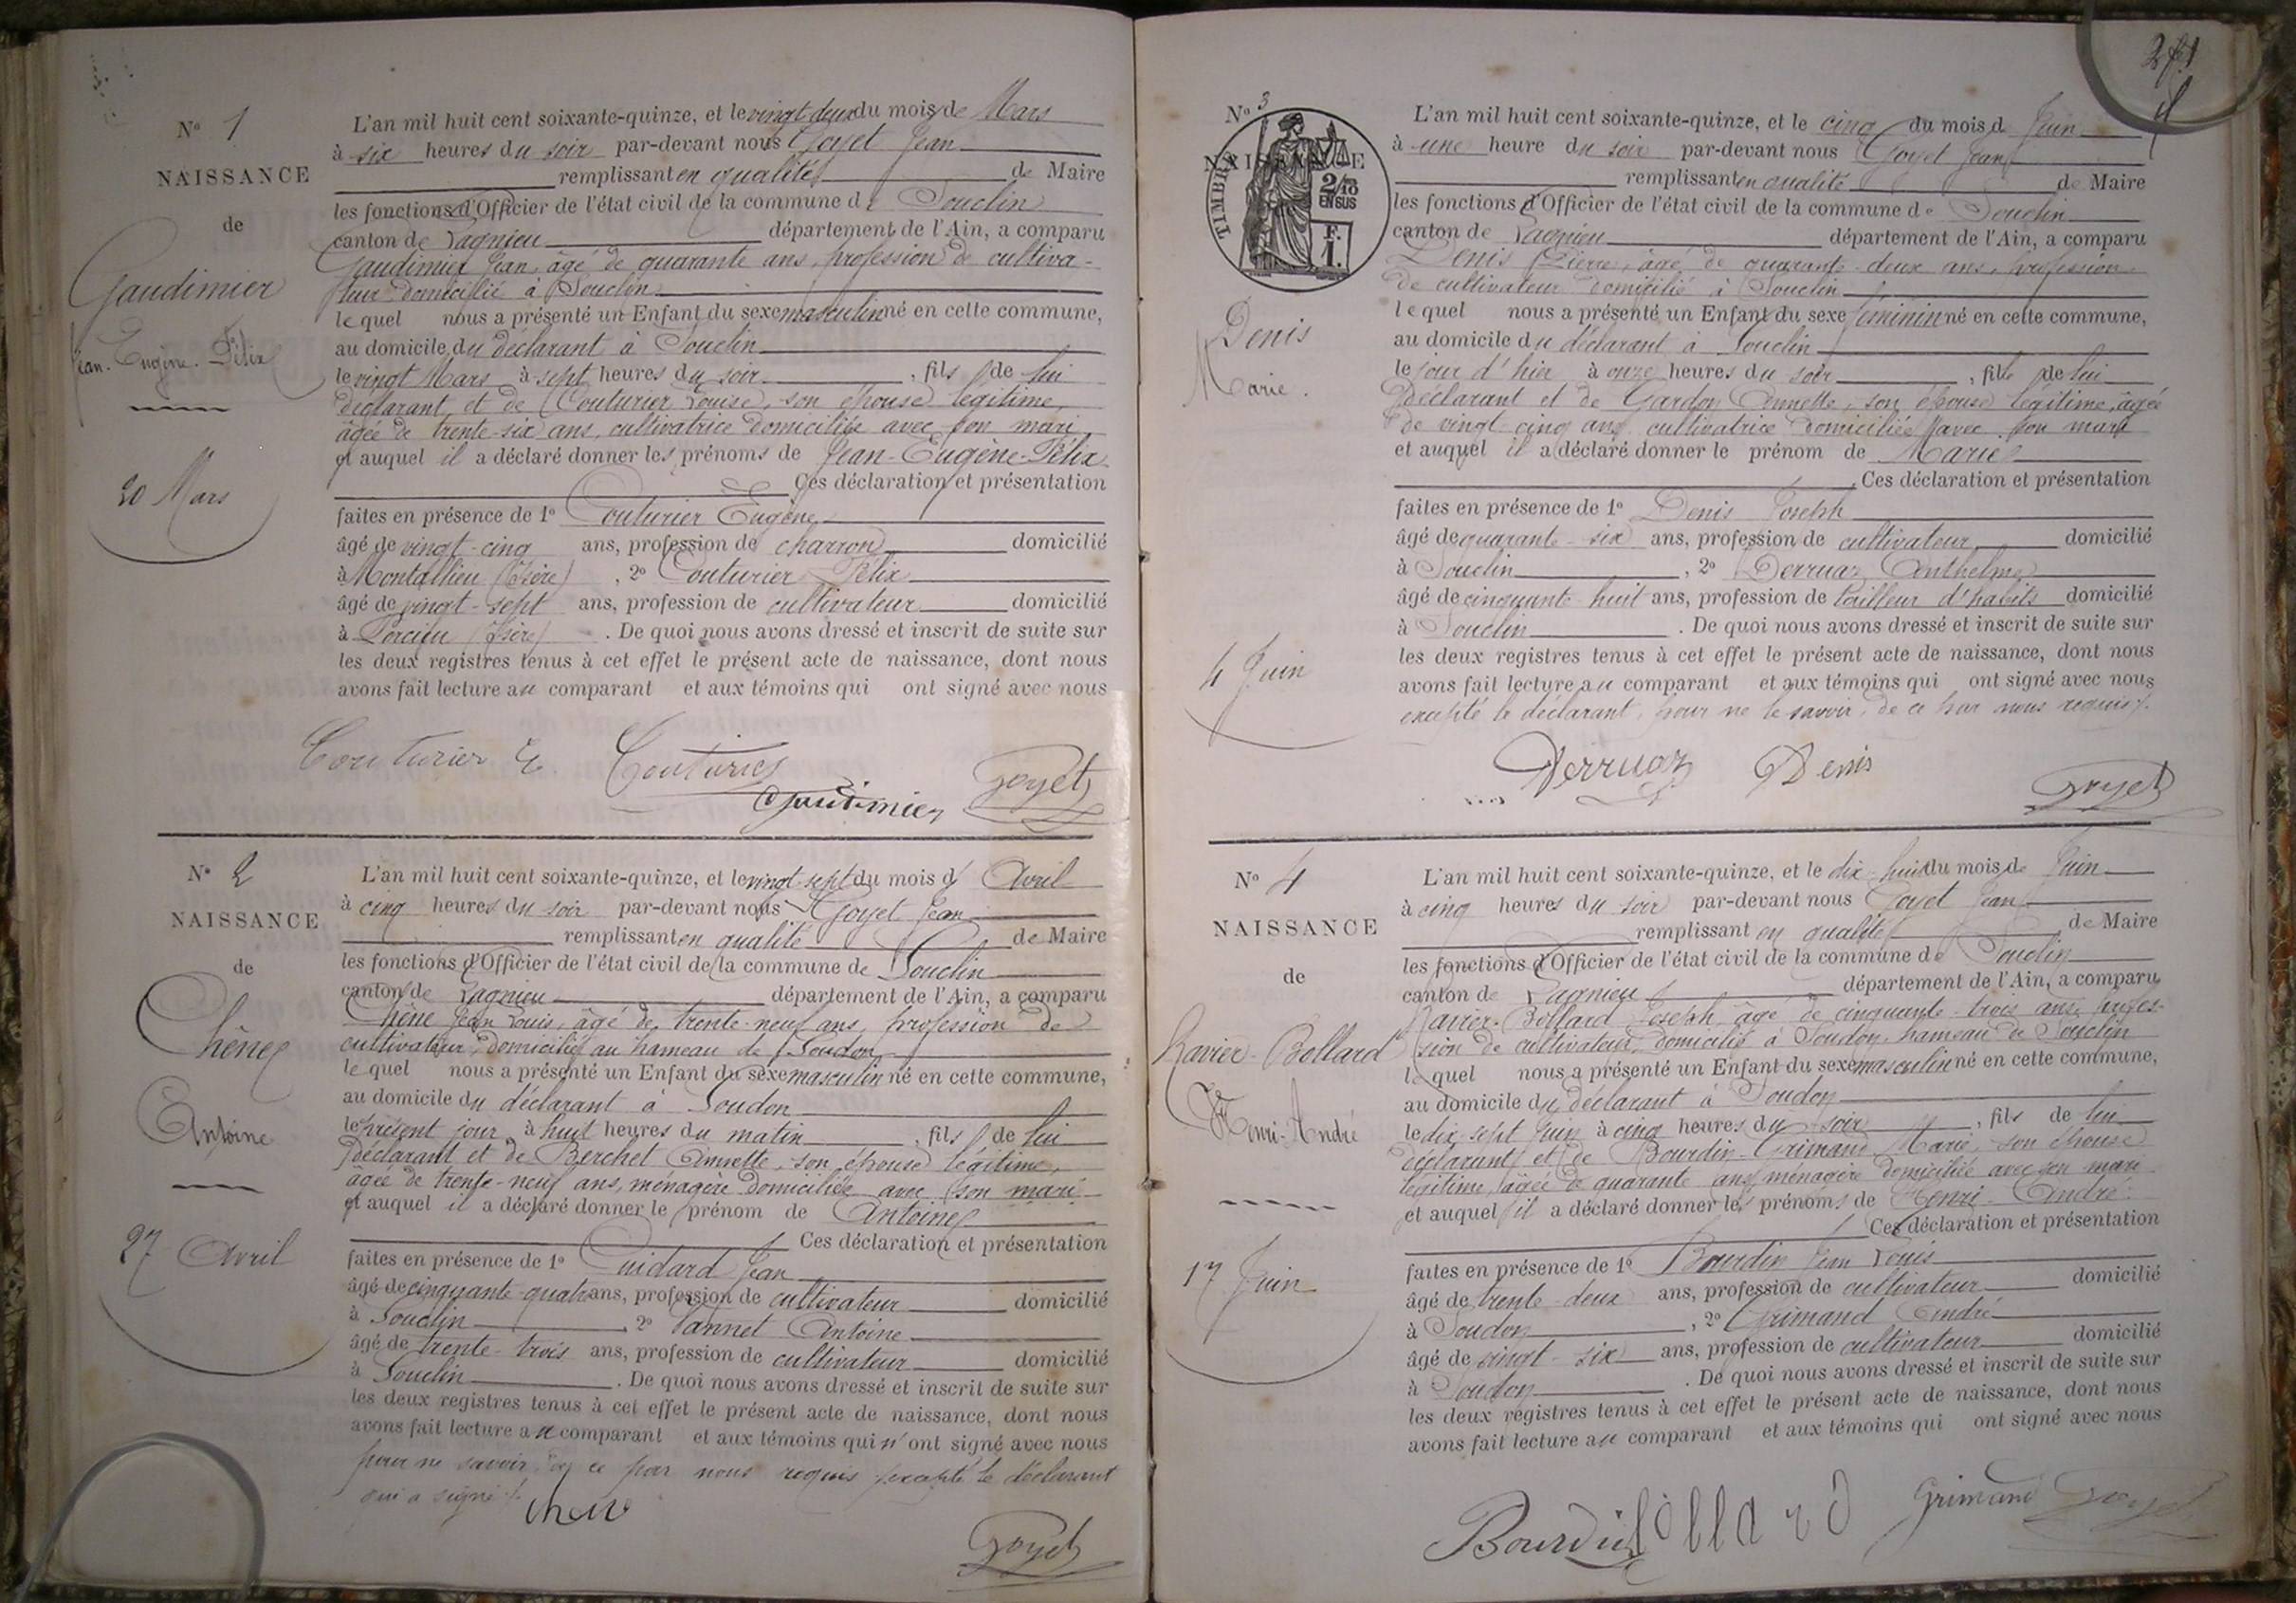 N° 1
NAISSANCE
de
Gaudimier
Jean-Eugène-Félix
20 Mars
L'an mil huit cent soixante-quinze, et le vingt deux du mois de Mars
à six heures du soir par-devant nous Goyet Jean
remplissant en qualité de Maire
les fonctions d'Officier de l'état civil de la commune de Souclin
canton de Lagnieu département de l'Ain, a comparu
Gaudimier Jean, âgé de quarante ans, profession de cultiva-
teur domicilié à Souclin
lequel nous a présenté un Enfant du sexe masculin né en cette commune,
au domicile du déclarant à Souclin
le vingt Mars à sept heures du soir, fils de lui
déclarant et de Couturier Louise, son épouse légitime,
âgée de trente-six ans, cultivatrice domiciliée avec son mari
et auquel il a déclaré donner les prénoms de Jean-Eugène-Félix
Ces déclaration et présentation
faites en présence de 1° Couturier Eugène
âgé de vingt-cinq ans, profession de charron domicilié
à Montallieu (Isère), 2° Couturier Félix
âgé de vingt-sept ans, profession de cultivateur domicilié
à Porcieu (Isère). De quoi nous avons dressé et inscrit de suite sur
les deux registres tenus à cet effet le présent acte de naissance, dont nous
avons fait lecture au comparant et aux témoins qui ont signé avec nous
Couturier E. Couturier Gaudimier Goyet
N° 2
NAISSANCE
de
Chêne
Antoine
27 Avril
L'an mil huit cent soixante-quinze, et le vingt-sept du mois d'Avril
à cinq heures du soir par-devant nous Goyet Jean
remplissant en qualité de Maire
les fonctions d'Officier de l'état civil de la commune de Souclin
canton de Lagnieu département de l'Ain, a comparu
Chêne Jean Louis, âgé de trente-neuf ans, profession de
cultivateur, domicilié au hameau de Soudon
lequel nous a présenté un Enfant du sexe masculin né en cette commune,
au domicile du déclarant à Soudon
le présent jour à huit heures du matin, fils de lui
déclarant et de Berchet Annette, son épouse légitime,
âgée de trente-neuf ans, ménagère domiciliée avec son mari
et auquel il a déclaré donner le prénom de Antoine
Ces déclaration et présentation
faites en présence de 1° Cuidard Jean
âgé de cinquante-quatre ans, profession de cultivateur domicilié
à Souclin, 2° Vannet Antoine
âgé de trente-trois ans, profession de cultivateur domicilié
à Souclin. De quoi nous avons dressé et inscrit de suite sur
les deux registres tenus à cet effet le présent acte de naissance, dont nous
avons fait lecture au comparant et aux témoins qui n'ont signé avec nous
pour ne savoir de ce par nous requis excepté le déclarant
qui a signé
Goyet
N° 3
NAISSANCE
TIMBRE
2/10
EN SUS
F.
1.
Denis
Marie.
4 Juin
L'an mil huit cent soixante-quinze, et le cinq du mois d Juin
à une heure du soir par-devant nous Goyet Jean
remplissant en qualité de Maire
les fonctions d'Officier de l'état civil de la commune de Souclin
canton de Lagnieu département de l'Ain, a comparu
Denis Pierre, âgé de quarante-deux ans, profession
de cultivateur domicilié à Souclin
lequel nous a présenté un Enfant du sexe féminin né en cette commune,
au domicile du déclarant à Souclin
le jour d'hier à onze heures du soir, fille de lui
déclarant et de Gardon Annette, son épouse légitime, âgée
de vingt-cinq ans cultivatrice domiciliée avec son mari
et auquel il a déclaré donner le prénom de Marie
Ces déclaration et présentation
faites en présence de 1° Denis Joseph
âgé de quarante-six ans, profession de cultivateur domicilié
à Souclin, 2° Derruaz Anthelme
âgé de cinquante-huit ans, profession de tailleur d'habits domicilié
à Souclin. De quoi nous avons dressé et inscrit de suite sur
les deux registres tenus à cet effet le présent acte de naissance, dont nous
avons fait lecture au comparant et aux témoins qui ont signé avec nous
excepté le déclarant, pour ne le savoir, de ce par nous requis.
Derruaz Denis Goyet
N° 4
NAISSANCE
de
Ravier-Bollard
Henri-André
17 Juin
L'an mil huit cent soixante-quinze, et le dix-huit du mois de Juin
à cinq heures du soir par-devant nous Goyet Jean
remplissant en qualité de Maire
les fonctions d'Officier de l'état civil de la commune de Souclin
canton de Lagnieu département de l'Ain, a comparu
Ravier-Bollard Joseph, âgé de cinquante-trois ans, profes-
sion de cultivateur, domicilié à Soudon, hameau de Souclin
lequel nous a présenté un Enfant du sexe masculin né en cette commune,
au domicile du déclarant à Soudon
le dix-sept Juin à cinq heures du soir, fils de lui
déclarant et de Bourdin-Grimand Marie, son épouse
légitime, âgée de quarante ans ménagère domiciliée avec son mari
et auquel il a déclaré donner les prénoms de Henri-André.
Ces déclaration et présentation
faites en présence de 1° Bourdin Jean Louis
âgé de trente-deux ans, profession de cultivateur domicilié
à Soudon, 2° Grimand André
âgé de vingt-six ans, profession de cultivateur domicilié
à Soudon. De quoi nous avons dressé et inscrit de suite sur
les deux registres tenus à cet effet le présent acte de naissance, dont nous
avons fait lecture au comparant et aux témoins qui ont signé avec nous
Bourdin bollard Grimand Goyet